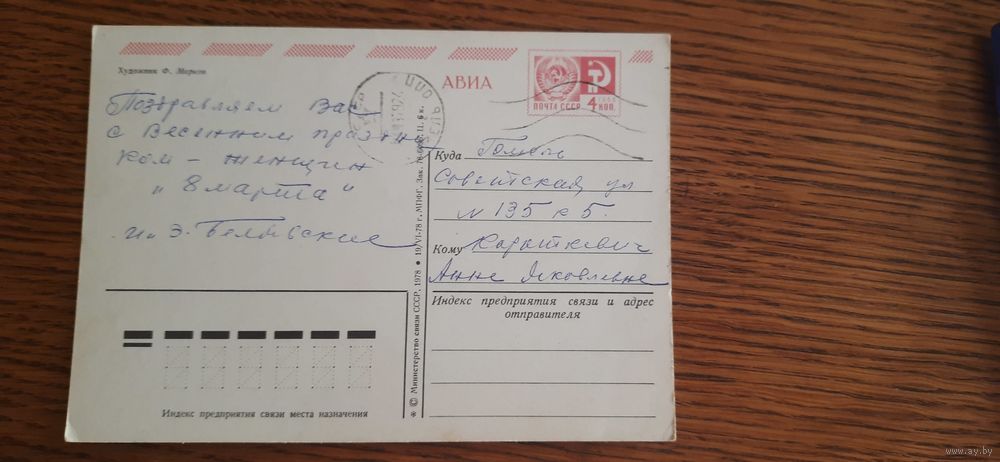 Художник Ф. Марков
АВИА
ПОЧТА СССР
1966
4 КОП.
Поздравляем Вас
с Весенним праздни
ком - женщин
"8 марта"
и Э.
Куда Гомель
Советская ул
N 135 к 5.
Кому Короткевич
Анне Яковлевне
Индекс предприятия связи и адрес
отправителя
Индекс предприятия связи места назначения
* © Министерство связи СССР. 1978 ● 19/VI-78 г. МПФГ. Зак. Ц. 6 к.
www.ay.by